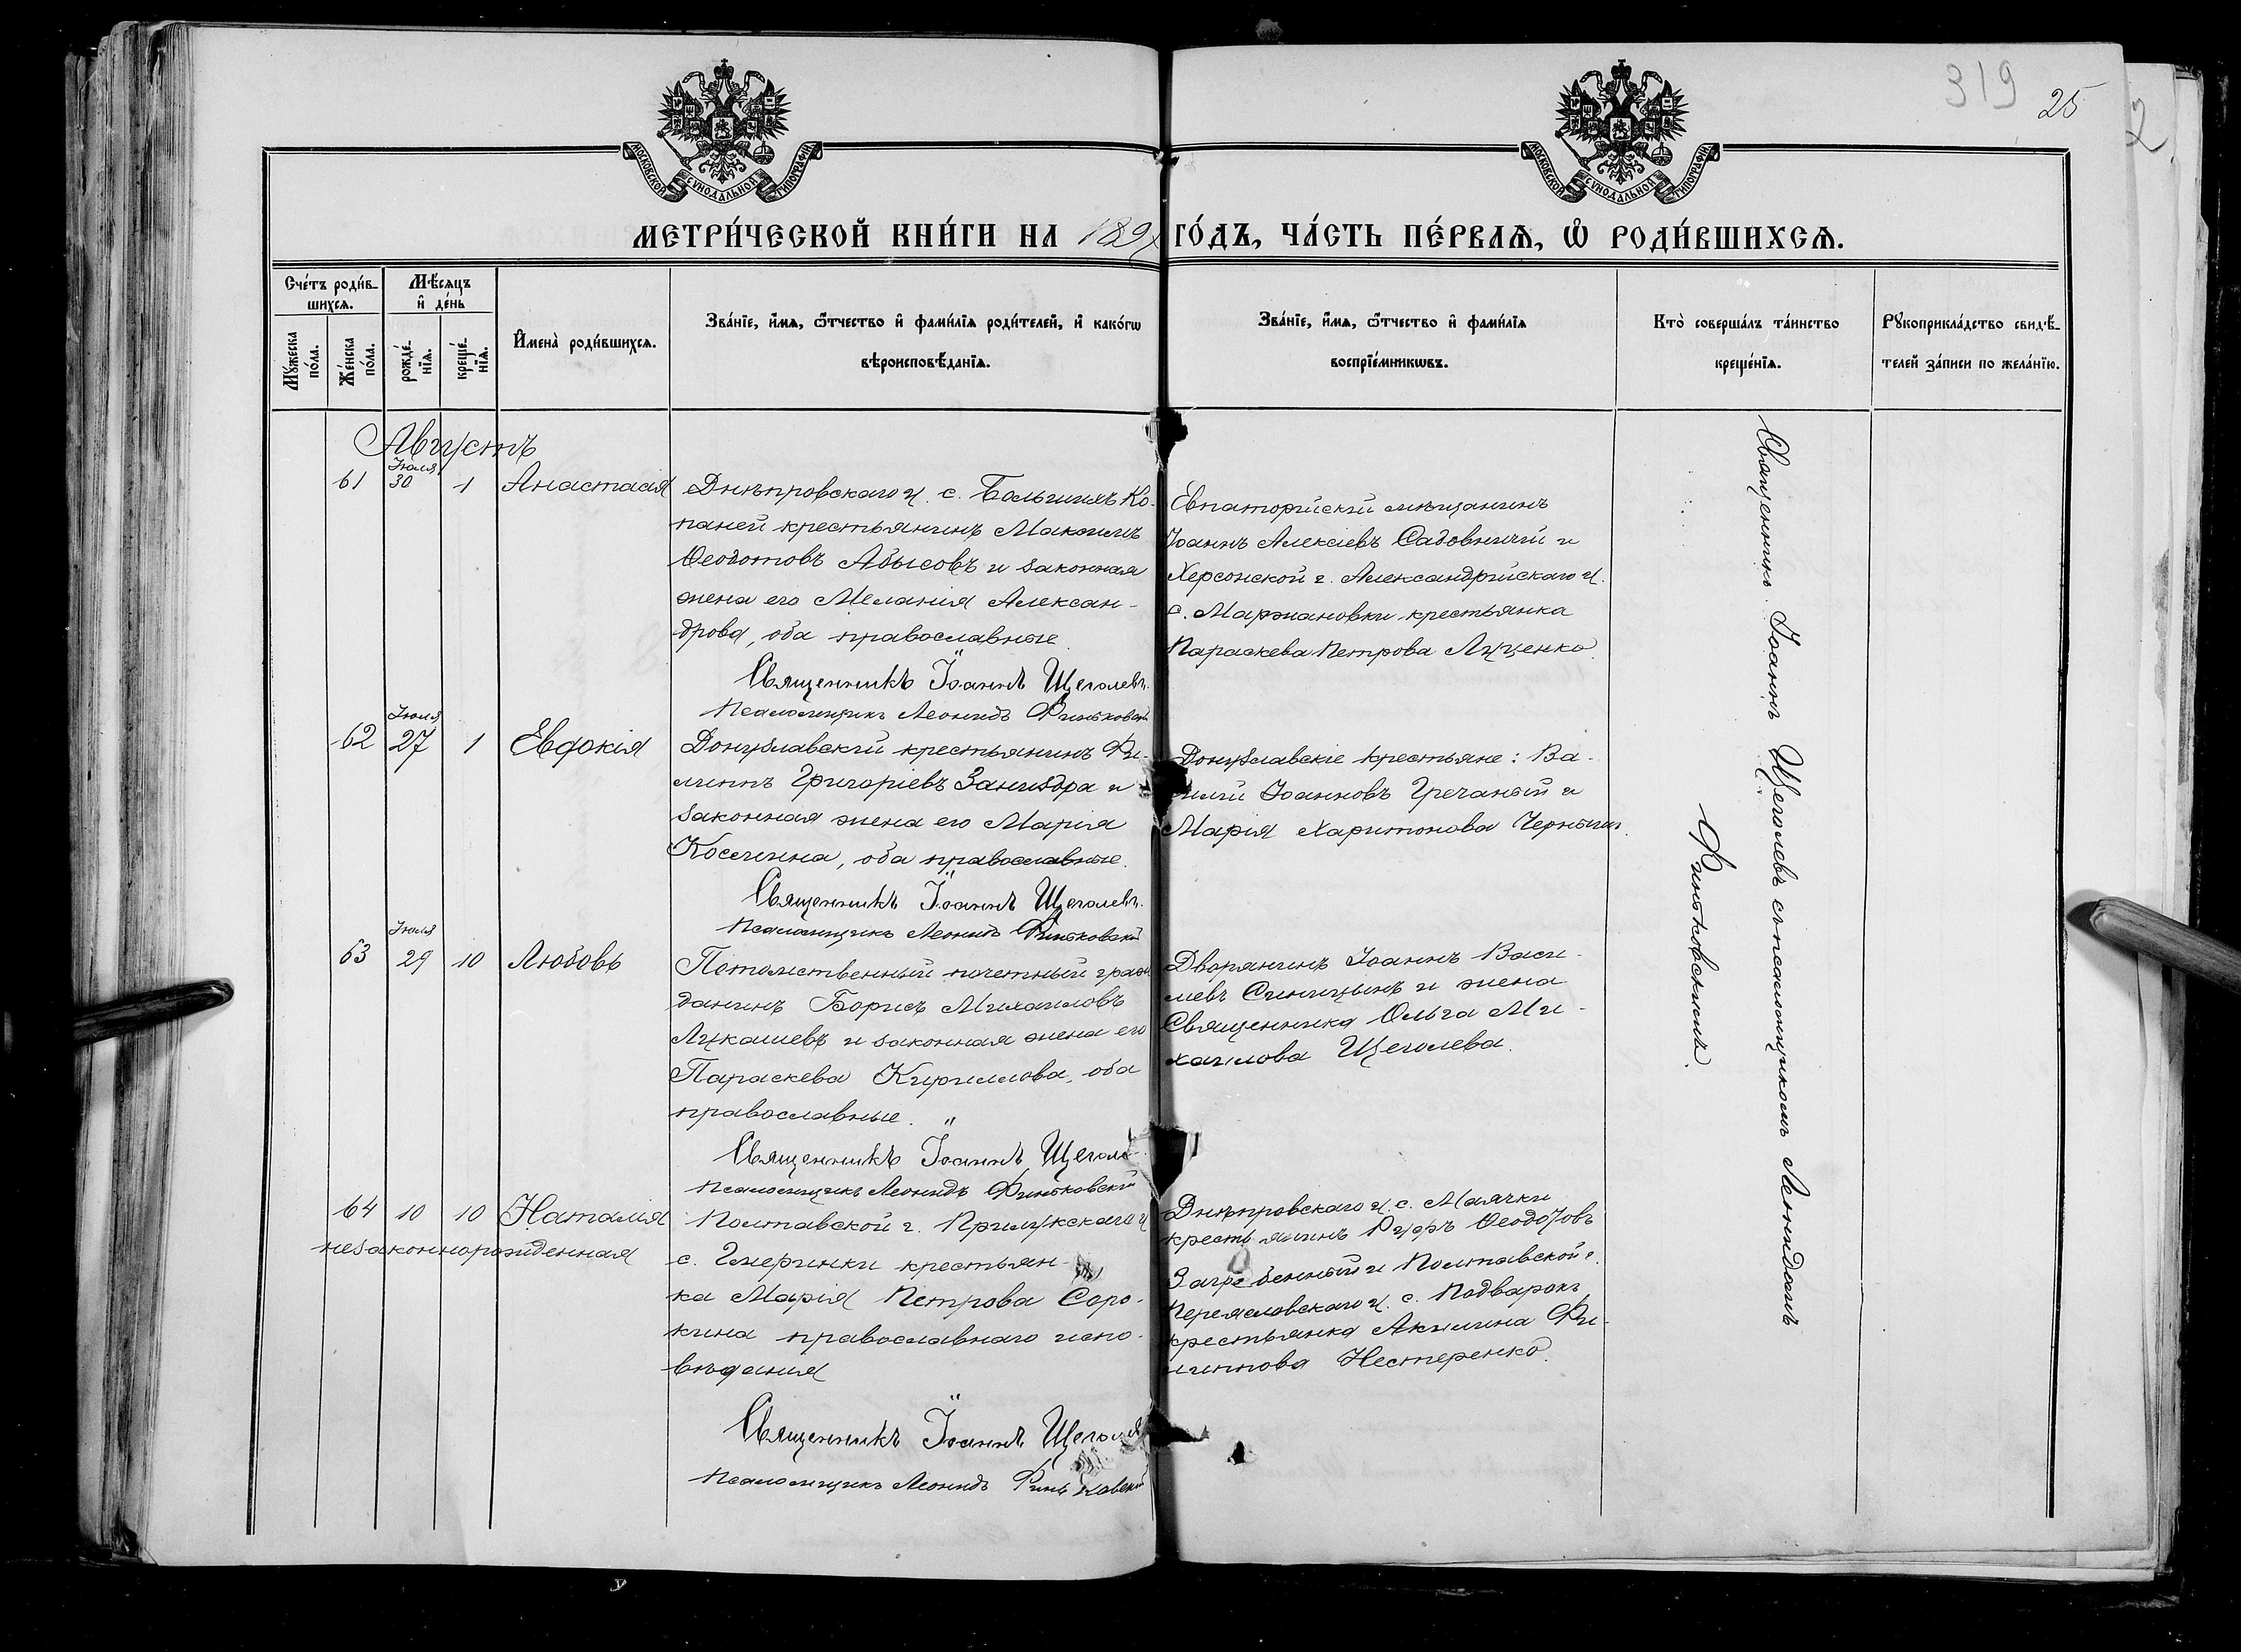 319
25
2
МОСКОВСКОЙ СѴНОДАЛЬНОЙ ТИПОГРАФІИ
МОСКОВСКОЙ СѴНОДАЛЬНОЙ ТИПОГРАФІИ
МЕТРИ́ЧЕСКОЙ КНИ́ГИ НА 189 ГО́ДЪ, ЧА́СТЬ ПЕ́РВАѦ, Ѽ РОДИ́ВШИХСѦ.
Сче́тъ роди́в-
шихсѧ.
Мѣ́сѧцъ
и҆ де́нь
Мꙋ́жеска
по́ла.
Же́нска
по́ла.
рожде́-
нїѧ.
креще́-
нїѧ.
И҆мена̀ роди́вшихсѧ.
Зва́нїе, и҆́мѧ, ѻ҆́тчество и҆ фами́лїѧ роди́телей, и҆ како́гѡ
вѣроисповѣ́данїѧ.
Зва́нїе, и҆́мѧ, ѻ҆́тчество и҆ фами́лїѧ
воспрїе́мникѡвъ.
Кто̀ соверша́лъ та́инство
креще́нїѧ.
Рꙋкоприкла́дство свидѣ́-
телей за́писи по жела́нїю.
Августъ
61 Іюля 30 1 Анастасія
Днѣпровскаго у. с. Большихъ Ко-
паней крестьянинъ Максимъ
Ѳеодотовъ Абысовъ и законная
жена его Меланія Алексан-
дрова, оба православные.
Священникъ Іоаннъ Щеголевъ.
Псаломщикъ Леонидъ Финьковскій
Евпаторійскій мѣщанинъ
Іоаннъ Алексіевъ Садовничій и
Херсонской г. Александрійскаго у.
с. Маржановки крестьянка
Параскева Петрова Луценко.
62 Іюля 27 1 Евдокія
Донузлавскій крестьянинъ Фи-
липпъ Григоріевъ Заниздра и
законная жена его Марія
Косьмина, оба православные.
Священникъ Іоаннъ Щеголевъ.
Псаломщикъ Леонидъ Финьковскій
Донузлавскіе крестьяне: Ва-
силій Іоанновъ Гречаный и
Марія Харитонова Чернышъ.
63 Іюля 29 10 Любовь
Потомственный почетный граж
данинъ Борисъ Михаиловъ
Лукашевъ и законная жена его
Параскева Кириллова, оба
православные.
Священникъ Іоаннъ Щеголе
Псаломщикъ Леонидъ Финьковскій
Дворянинъ Іоаннъ Васи-
левъ Синицынъ и жена
Священника Ольга Ми-
хаилова Щеголева.
64 10 10 Наталія
незаконнорожденная
Полтавской г. Прилукскаго у
с. Гмеринки крестьян-
ка Марія Петрова Соро-
кина православнаго испо-
вѣданія
Священникъ Іоаннъ Щеголевъ
Псаломщикъ Леонидъ Финьковскій
Днѣпровскаго у. с. Маячки
крестьянинъ Руфъ Ѳеодотовъ
Загребенный и Полтавской г.
Переяславскаго у. с. Подварокъ
крестьянка Акилина Фи-
липпова Нестеренко.
Священникъ Іоаннъ Щеголевъ съ псаломщикомъ Леонидомъ
Финьковскимъ.